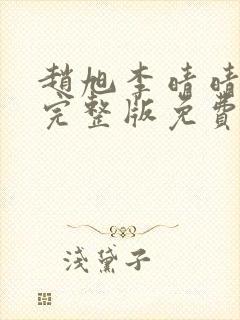 趙旭李晴晴
完整版免費
淺黛子